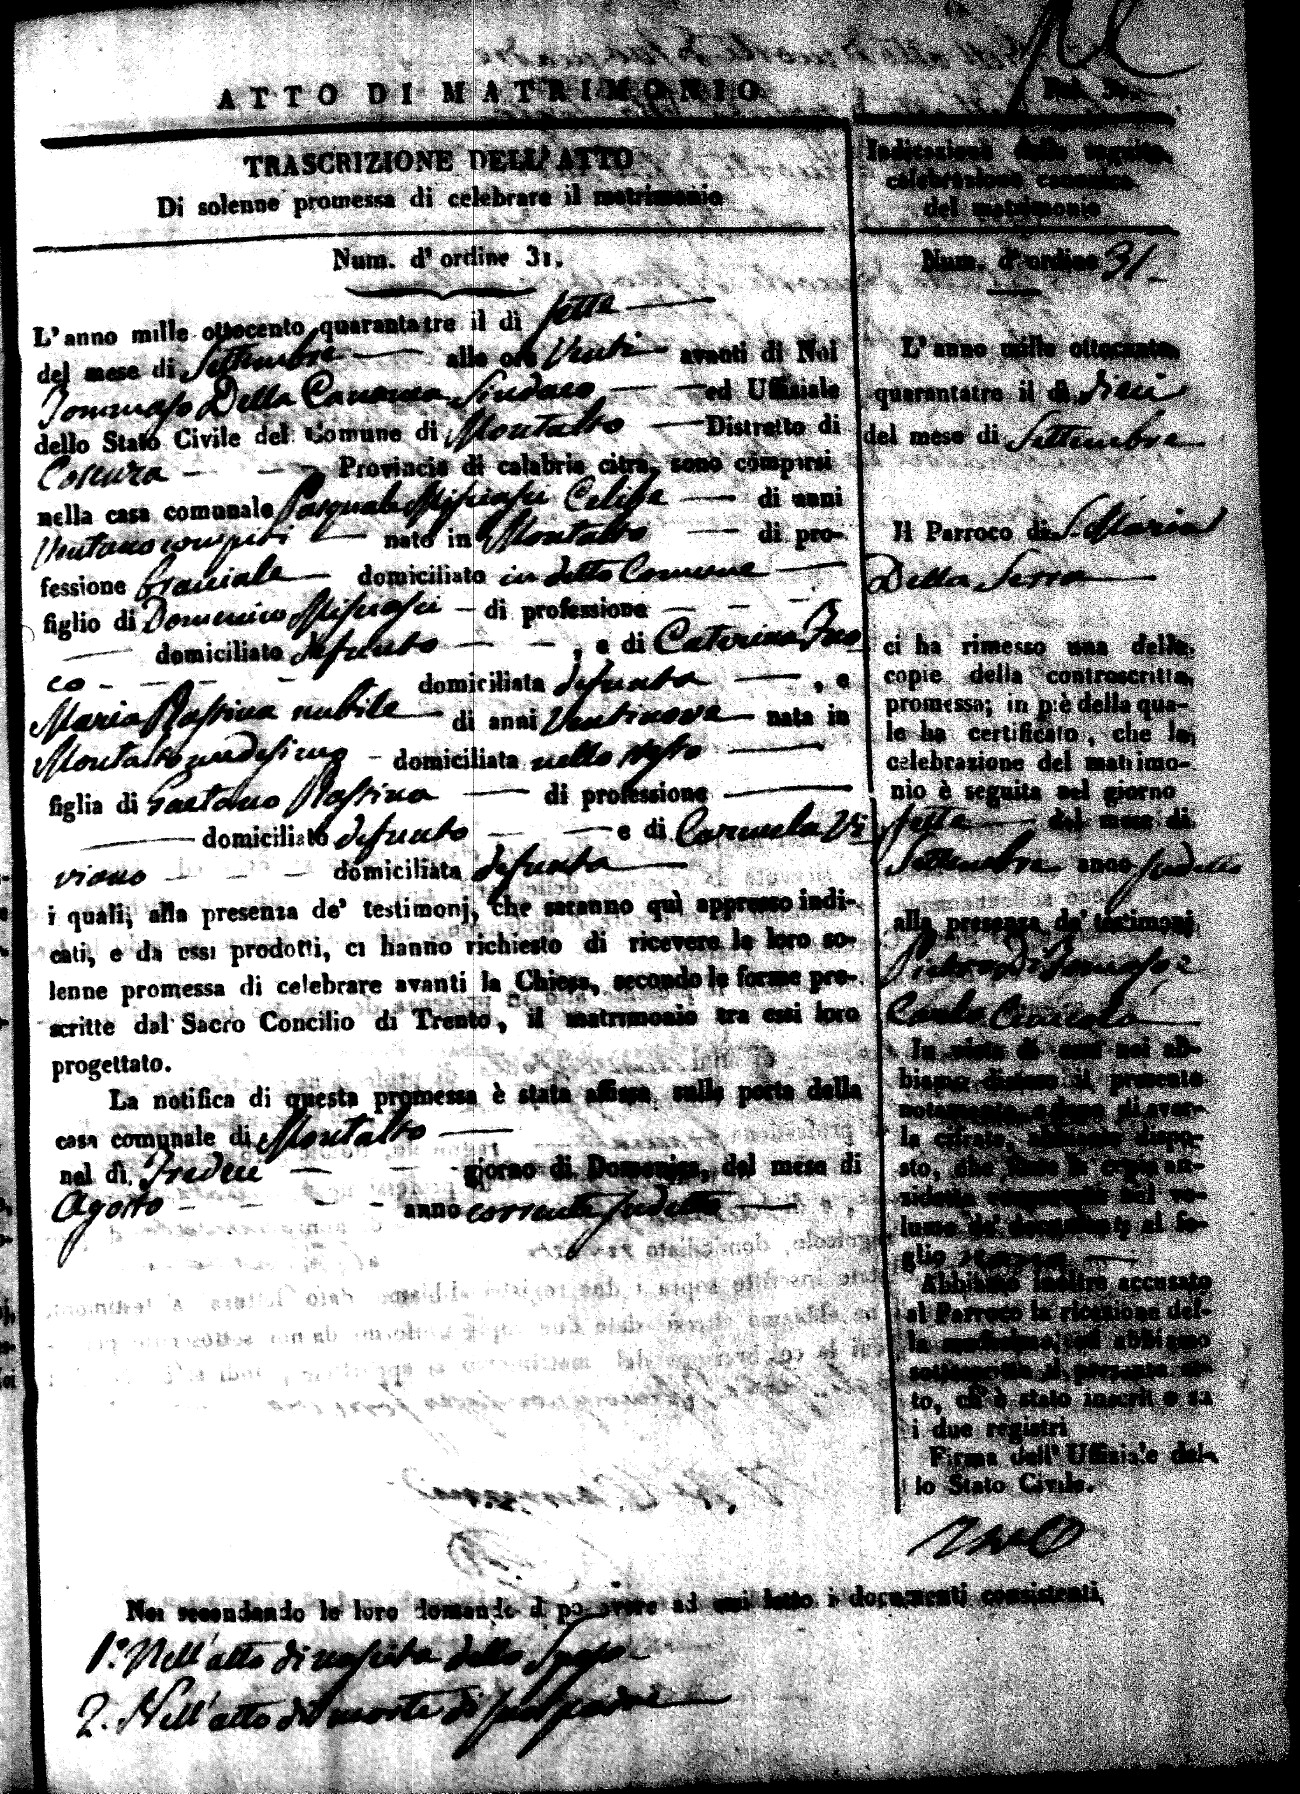 ATTO DI MATRIMONIO
TRASCRIZIONE DELL'ATTO
Di solenne promessa di celebrare il matrimonio
Num. d'ordine 31.
L'anno mille ottocento quarantatre il dì sette
del mese di Settembre alle ore Venti avanti di Noi
Tommaso Della Sindaco ed Uffiziale
dello Stato Civile del Comune di Montalto Distretto di
Cosenza Provincia di calabria citra, sono comparsi
nella casa comunale Pasquale Celibe di anni
compiti nato in Montalto di pro-
fessione domiciliato in detto Comune
figlio di Domenico di professione
domiciliato defunto , e di Caterina
co domiciliata defunta , e
Maria nubile di anni Ventinove nata in
Montalto medesimo domiciliata nello stesso
figlia di Gaetano di professione
domiciliato defunto e di Carmela Vi
viano domiciliata defunta
i quali, alla presenza de' testimonj, che saranno quì appresso indi-
cati, e da essi prodotti, ci hanno richiesto di ricevere la loro so-
lenne promessa di celebrare avanti la Chiesa, secondo le forme pre-
scritte dal Sacro Concilio di Trento, il matrimonio tra essi loro
progettato.
La notifica di questa promessa è stata affissa sulla porta della
casa comunale di Montalto
nel dì Tredici giorno di Domenica, del mese di
Agosto anno corrente sudetto
Noi secondando le loro domande d po avere ad essi letto i documenti consistenti,
1.° Nell'atto di nascita dello Sposo
2. Nell'atto di morte di suo padre
Indicazione della seguita
celebrazione canonica
del matrimonio
Num. d'ordine 31
L'anno mille ottocento
quarantatre il dì dieci
del mese di Settembre
Il Parroco di S. Maria
Della Serra
ci ha rimesso una delle
copie della controscritta
promessa; in piè della qua-
le ha certificato, che la
celebrazione del matrimo-
nio è seguita nel giorno
sette del mese di
Settembre anno sudetto
alla presenza de' testimonj
Pietro Di Tommaso e
Carlo
In vista di essa noi ab-
biamo disteso il presente
notamento, e dopo di aver-
la cifrata, abbiamo dispo-
sto, che fosse la copia an-
zidetta conservata nel vo-
lume de' documenti al fo-
glio
Abbiamo inoltre accusato
al Parroco la ricezione del-
la medesima, ed abbiamo
sottoscritto il presente at-
to, ch'è stato inscritto su
i due registri
Firma dell'Uffiziale del-
lo Stato Civile.